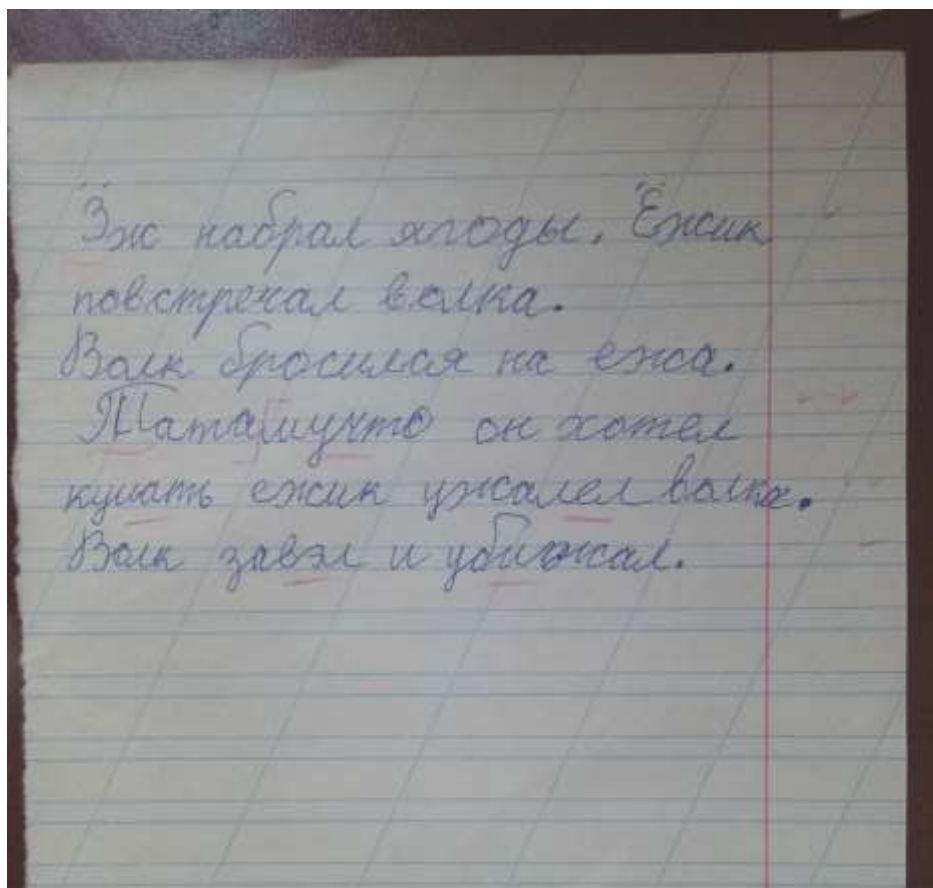 Ӟж набрал ягоды. Ёжик
повстречал волка.
Волк бросился на ежа.
Патамучто он хотел
кушать ежик ужалел волка.
Волк завэл и убижал.